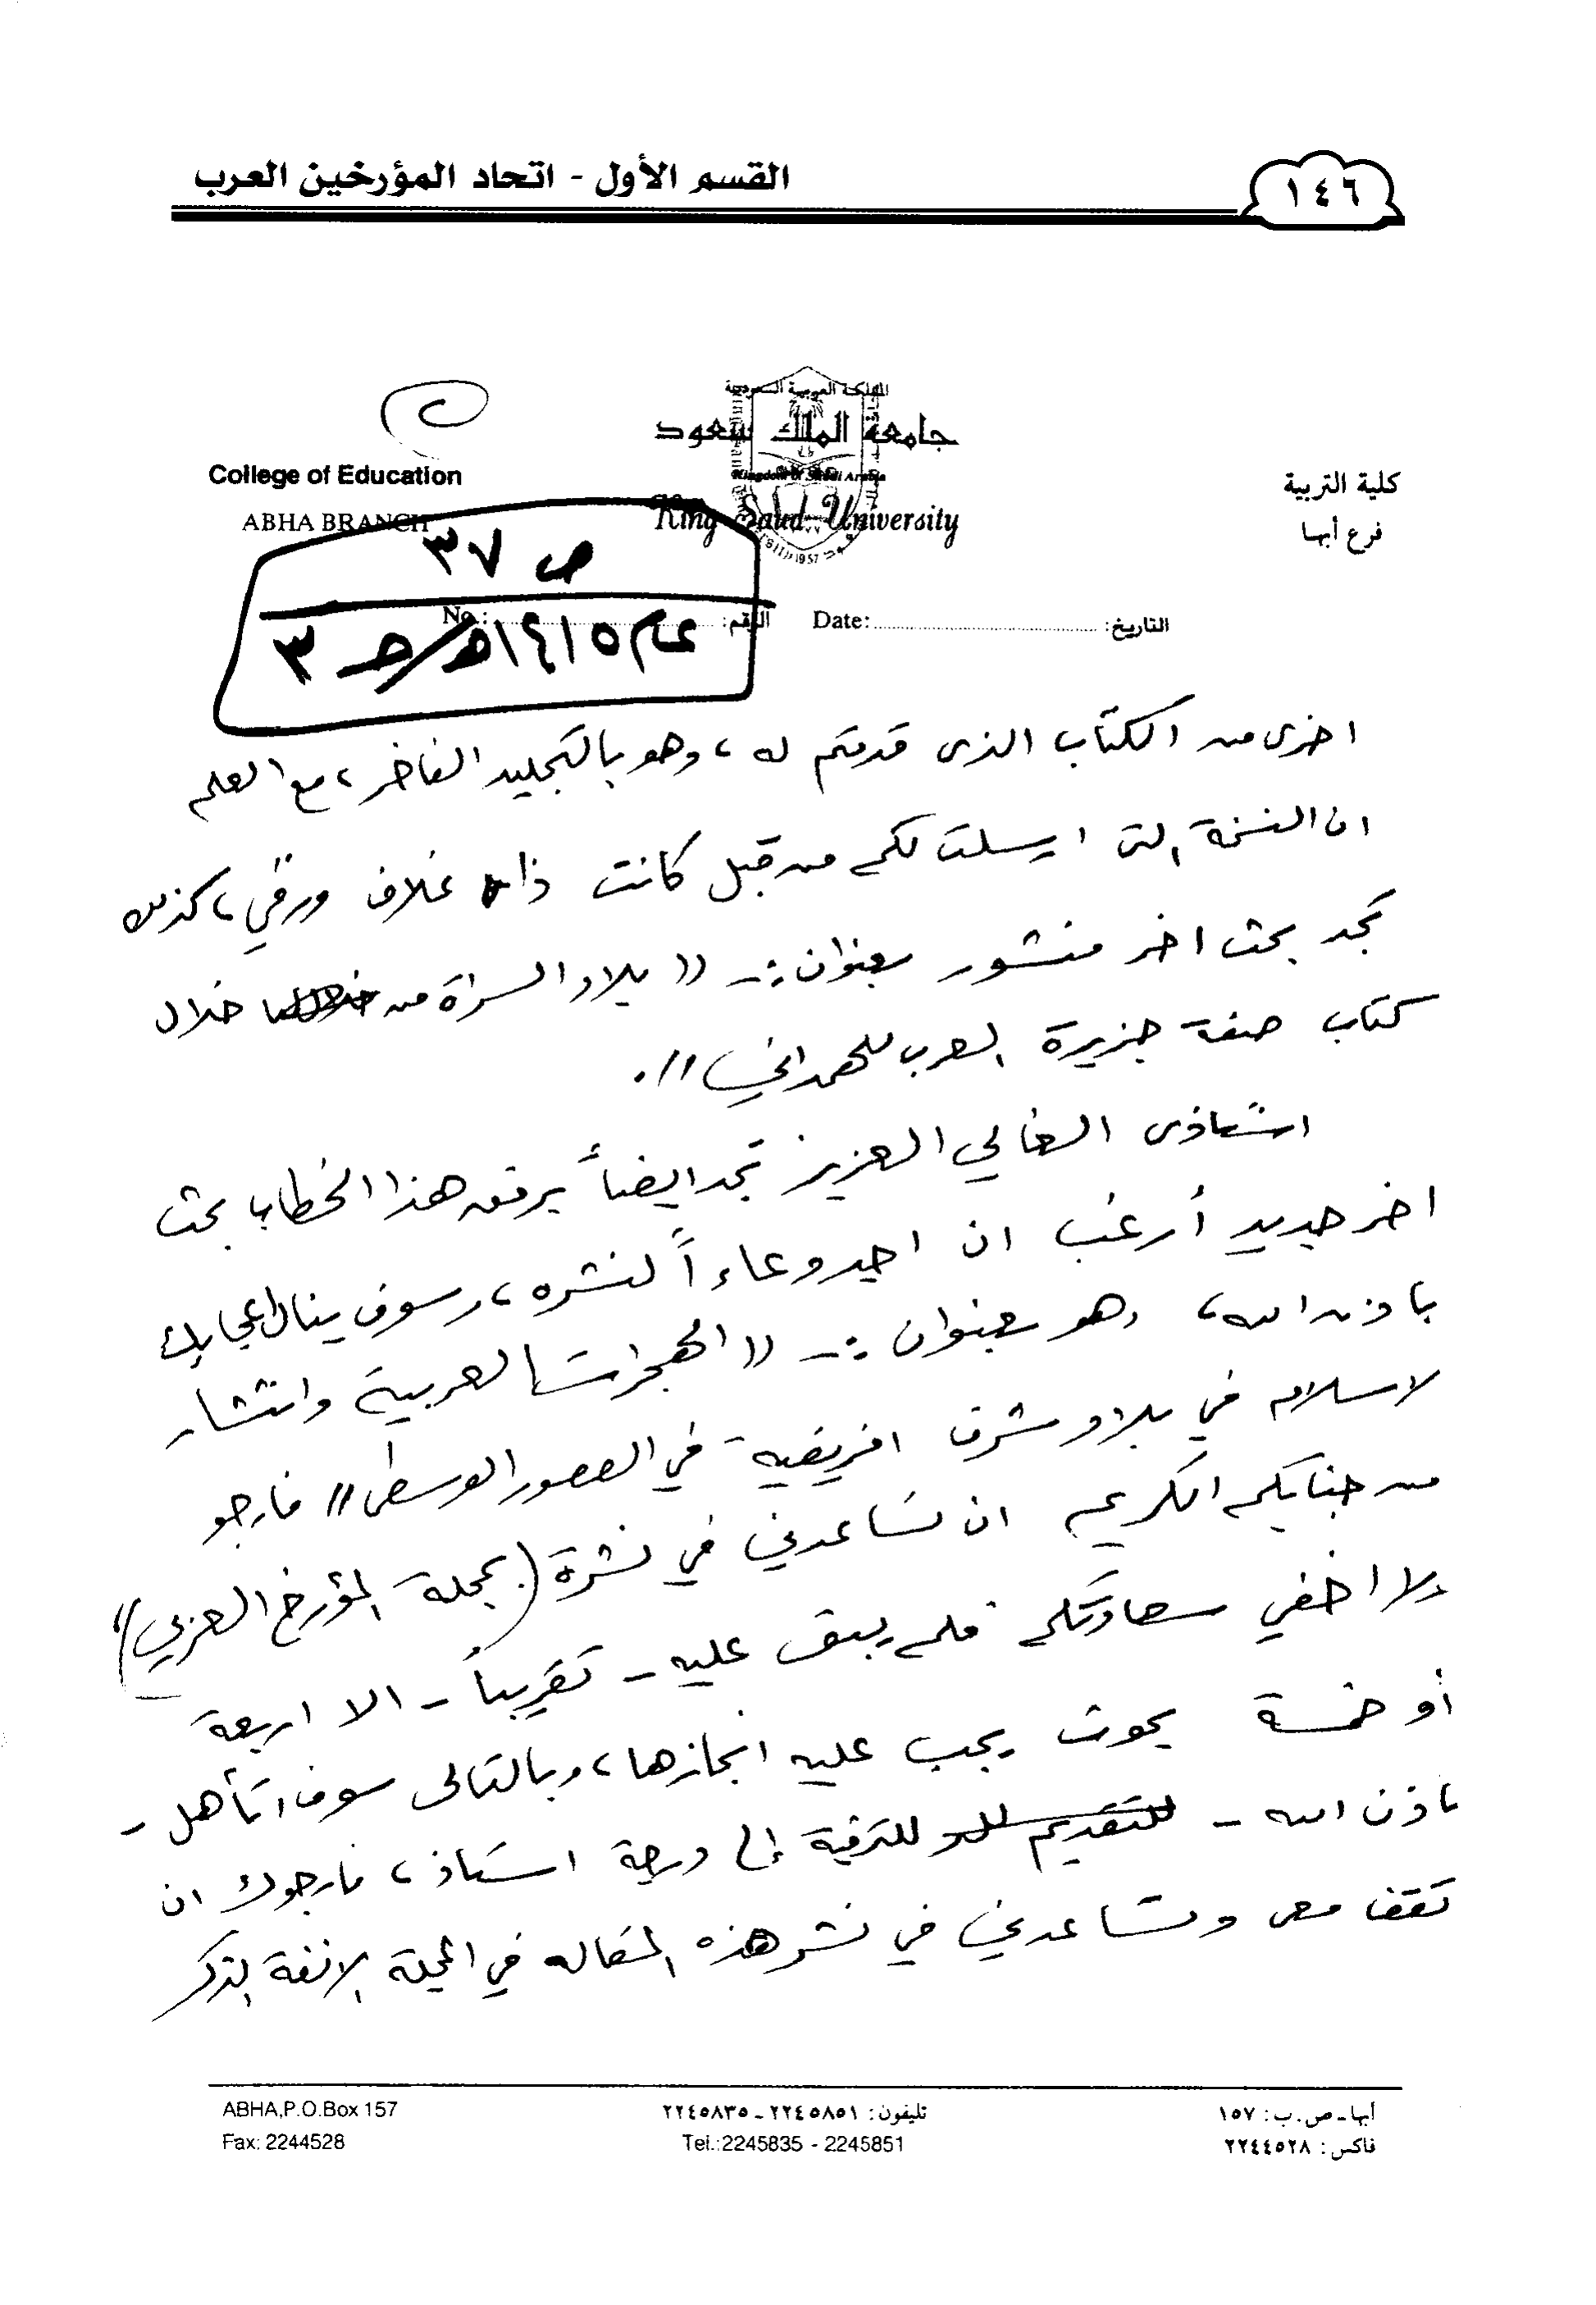 القسم الأول - اتحاد المؤرخين العرب
١٤٦
المملكة العربية السعودية
جامعة الملك سعود
Kingdom of Saudi Arabia
King Saud University
1957
College of Education
ABHA BRANCH
كلية التربية
فرع أبها
ص ٣٧
عام ١٤١٥هـ/حـ ٣
No.: الرقم:
Date: التاريخ:
اخرى من الكتاب الذى قدمتم له، وهو بالتجليد الفاخر، مع العلم
ان النسخة التى ارسلت لكم من قبل كانت ذا غلاف ورقي، كذلك
تجد بحث اخر منشور بعنوان :- (( بلاد السراة من خلال
كتاب صفة جزيرة العرب للهمداني )).
استاذى الغالي العزيز تجد ايضاً برفق هذا الخطاب بحث
اخر جديد أرغب ان اجد وعاءاً لنشره، وسوف ينال اعجابك
باذن الله، وهو بعنوان :- (( الهجرات العربية وانتشار
لاسلام في بلاد شرق افريقية في العصور الوسطى )) فارجو
من جنابكم الكريم ان تساعدني في نشرة (بمجلة المؤرخ العربي)،
ولا اخفي سعادتكم فلم يبق عليه - تقريباً - الا اربعة
أو خمسة بحوث يجب عليه انجازها، وبالتالى سوف اتأهل -
باذن الله - للتقديم للترقية إلى درجة استاذ، فارجوك ان
تقف معى وتساعدني في نشر هذه المقاله في المجلة الانفة الذكر
ABHA,P.O.Box 157
Fax: 2244528
تليفون: ٢٢٤٥٨٥١ - ٢٢٤٥٨٣٥
Tel.:2245835 - 2245851
أبها - ص.ب: ١٥٧
فاكس: ٢٢٤٤٥٢٨